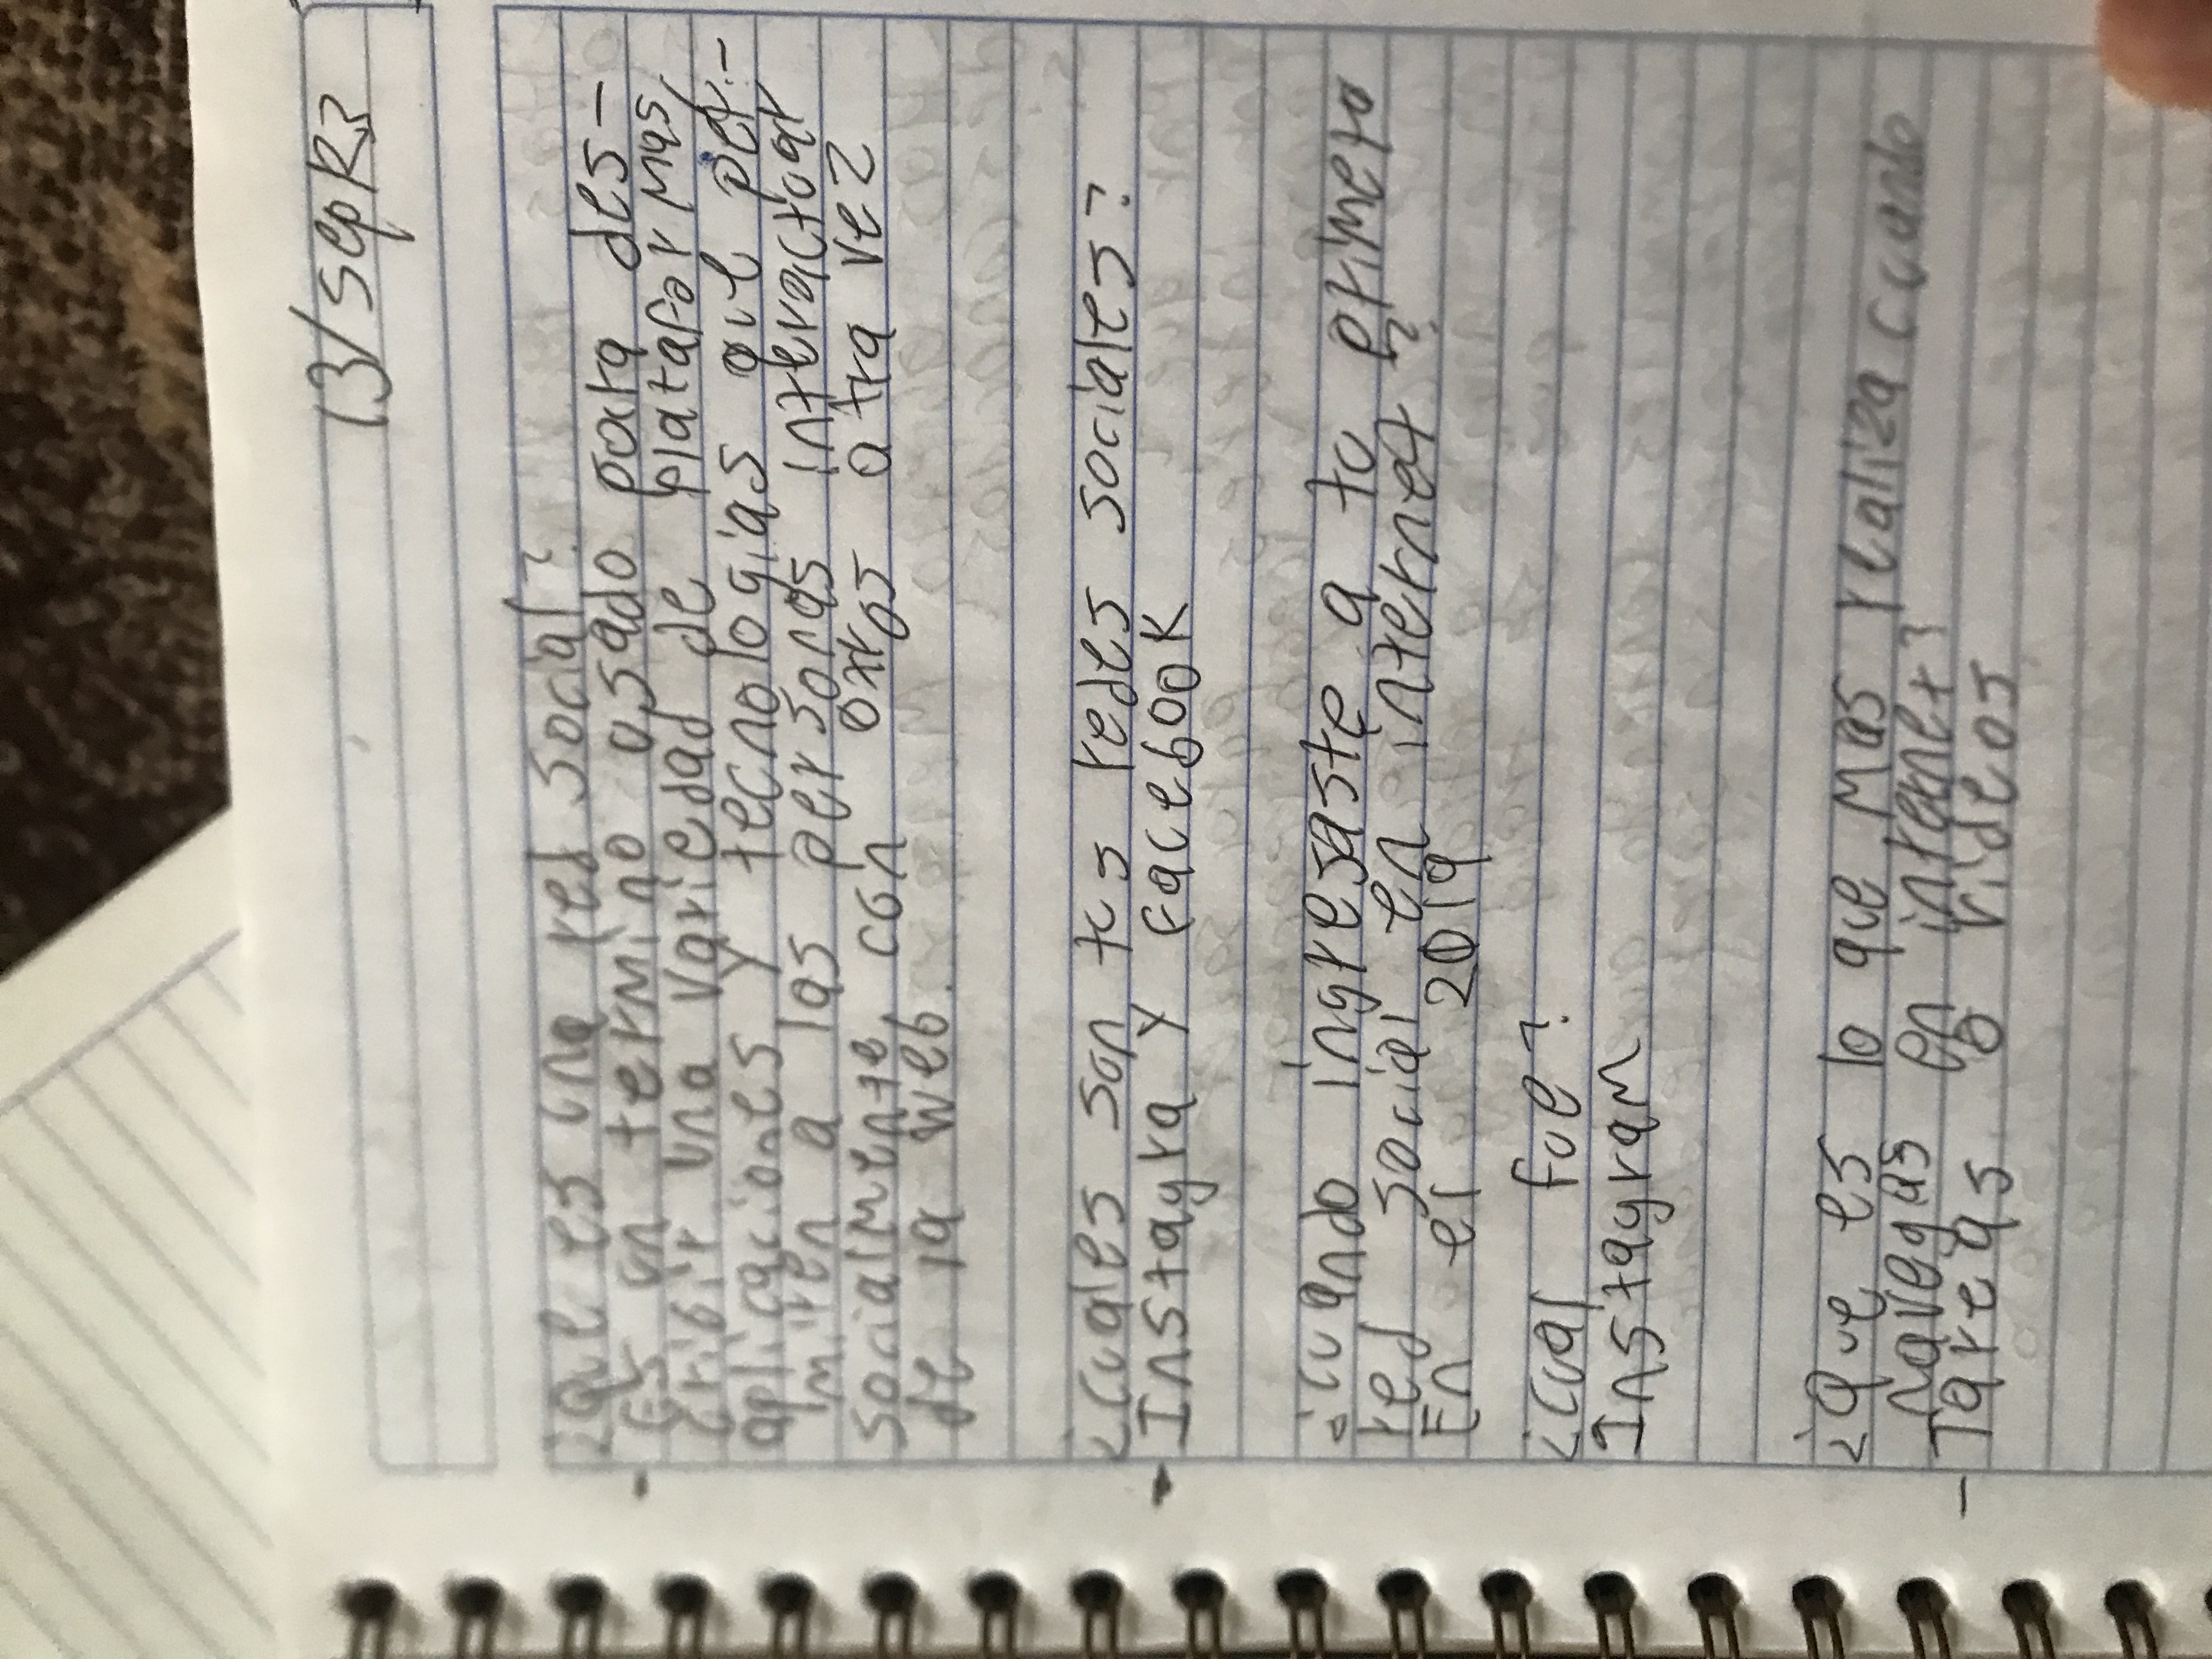 13/sepR3
¿Que es una red social?
Es un termino usado para des-
cribir una variedad de plataformas,
aplicaciones y tecnologias que per-
miten a las personas interactoar
socialmente con otros atra vez
de la web.
¿Cuales son tus redes sociales?
Instagra y facebook
¿cuando ingresaste a tu primera
red social en internet?
En el 2019
¿cual fue?
Instagram
¿Que es lo que mas realiza cuando
navegas en internet?
Tareas o videos